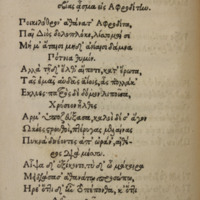 ᾆσμα εἰς Ἀφροδίτην.
Ποικιλόθρον' ἀθάνατ' Ἀφροδίτα,
Παῖ Διὸς δολοπλόκε, λίσσομαί σε
Μή μ' ἄταισι μηδ' ἀνίαισι δάμνα
Πότνια θυμόν.
Ἀλλὰ τῇδ' ἔλθ' αἴποτε, κατ' ἔρωτα,
Τᾶς ἐμᾶς αὐδᾶς ἀΐοις, ἃς πολλάκ'
Ἔκλυες πατρὸς δὲ δόμον λιποῖσα,
Χρύσεον ἦλθες
Ἅρμ' ὑποζεύξασα, καλοὶ δέ σ' ἆγον
Ὠκέες στρουθοὶ, πτέρυγας μελαίνας
Πυκνὰ δινέοντες ἀπ' ὠραν' αἰθέ-
ρος διὰ μέσσω.
Αἶψα δ' ἐξίκοντο, τὺ δ' ὦ μάκαιρα
Μειδιάσασ' ἀθανάτῳ προσώπῳ,
Ἤρε' ὅττι δ' ἦν πέπονθα, κ' ὅττι